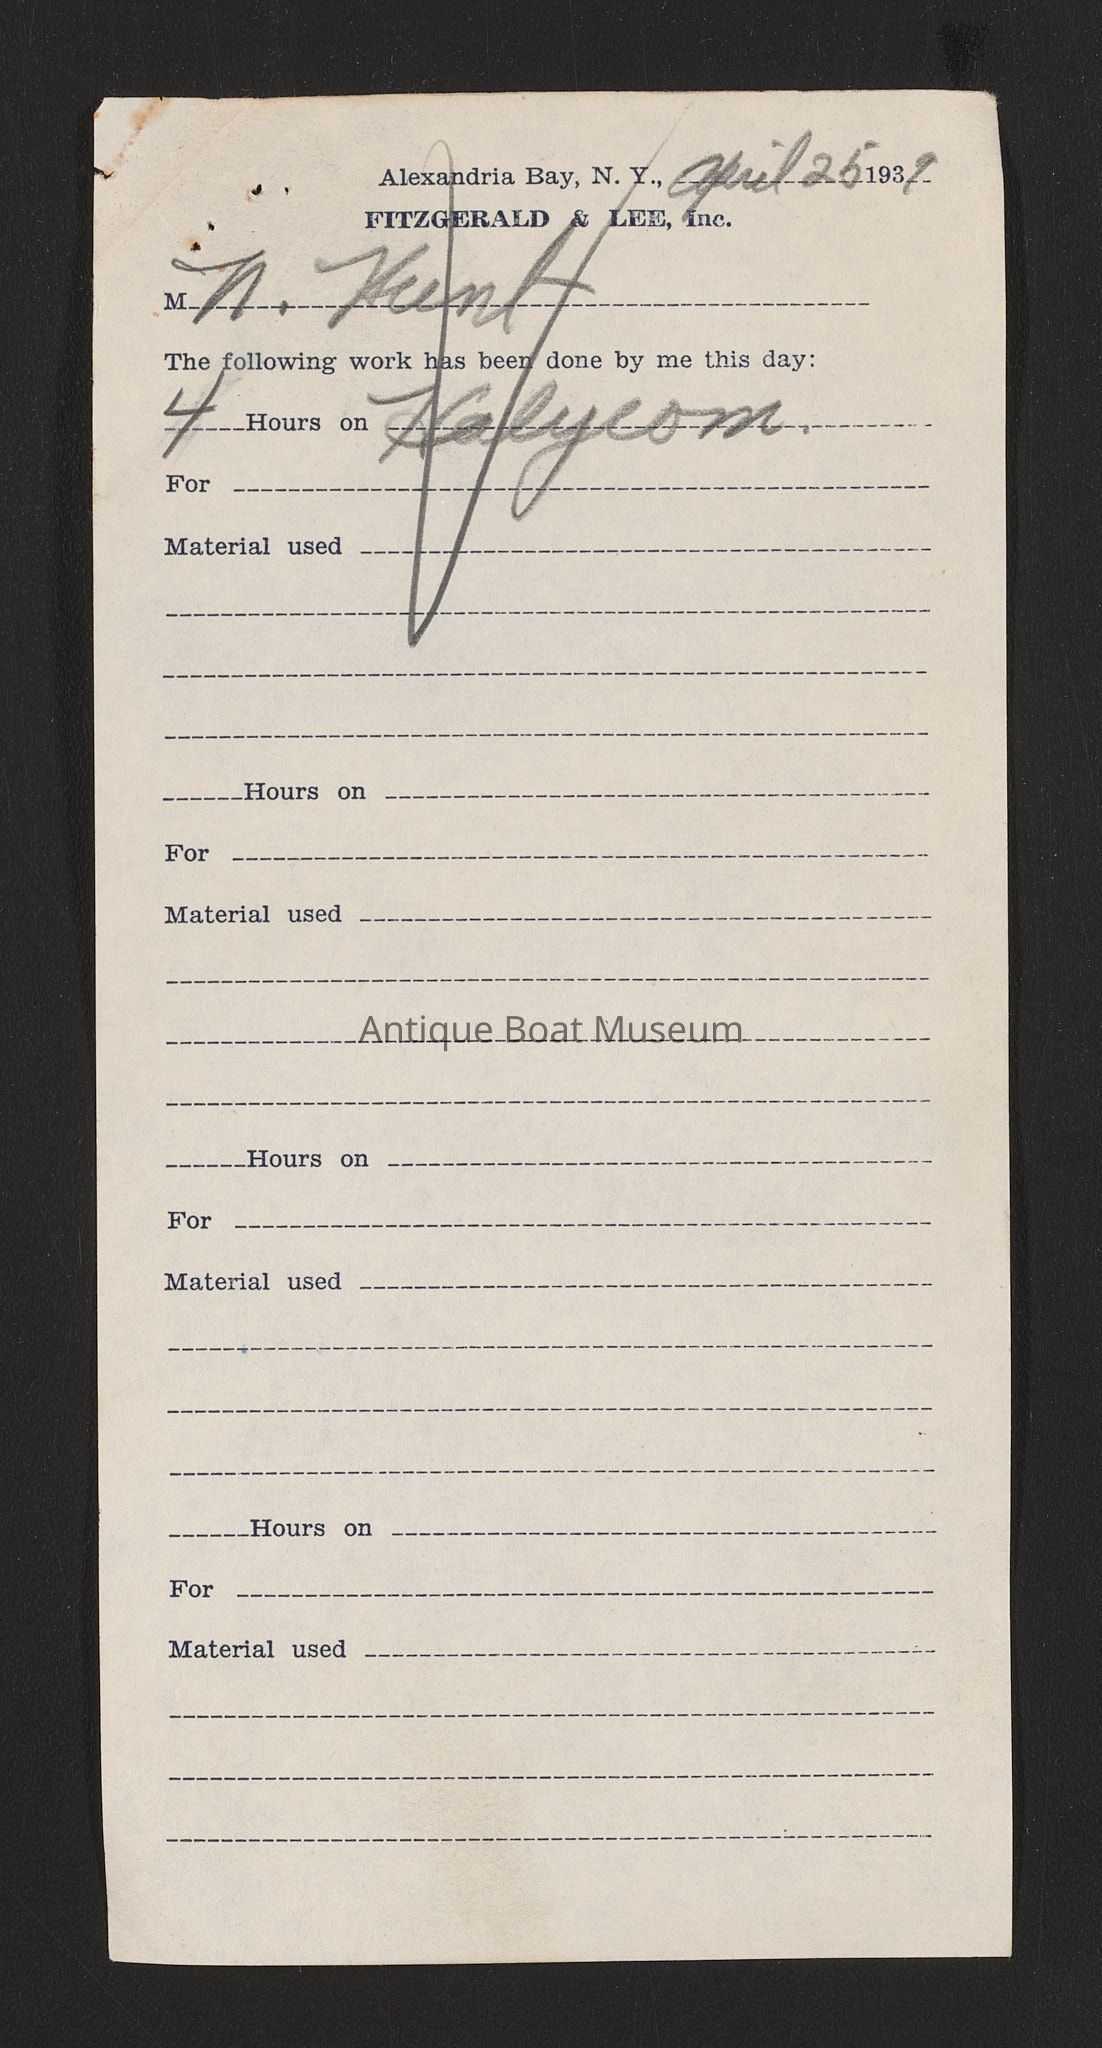 Alexandria Bay, N. Y., April 25 1939
FITZGERALD & LEE, Inc.
M N. Hunt
The following work has been done by me this day:
4 Hours on Kalycom.
For
Material used
Hours on
For
Material used
Antique Boat Museum
Hours on
For
Material used
Hours on
For
Material used